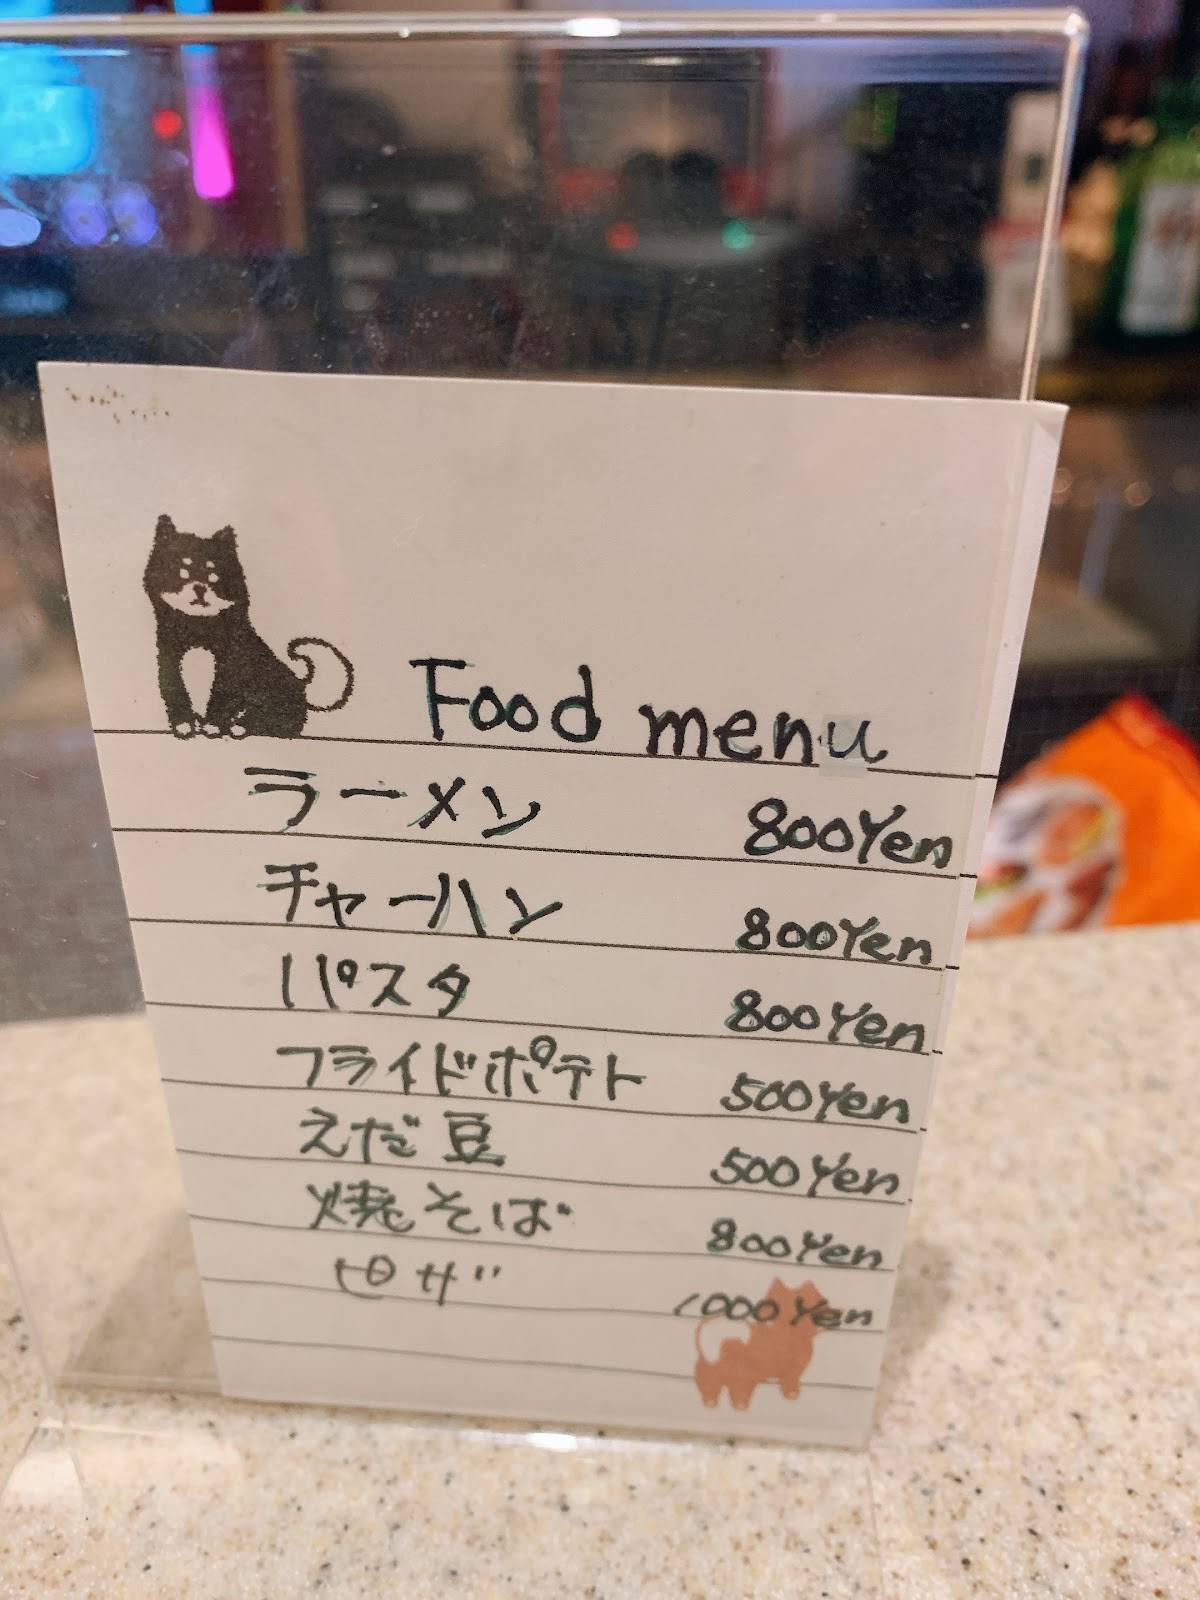 Food menu
ラーメン 800Yen
チャーハン 800Yen
パスタ 800Yen
フライドポテト 500Yen
えだ豆 500Yen
焼そば 800Yen
ピザ 1000Yen